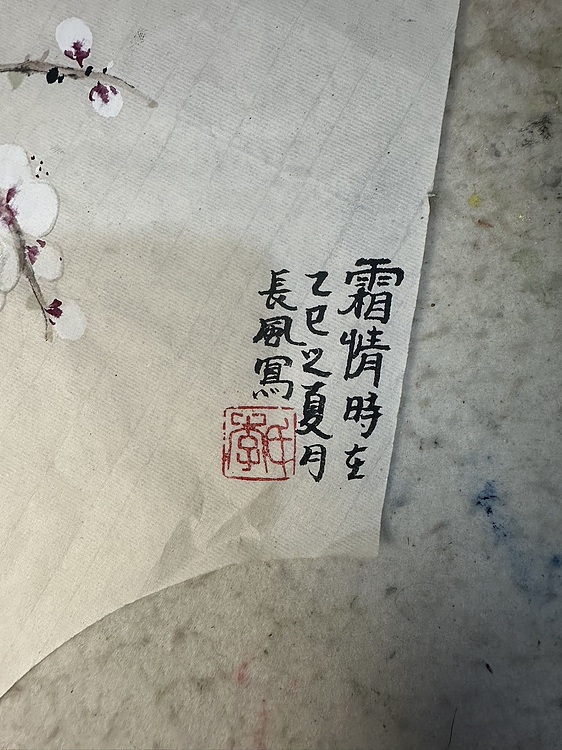 霜情時在
乙巳之夏月
長風寫
李氏